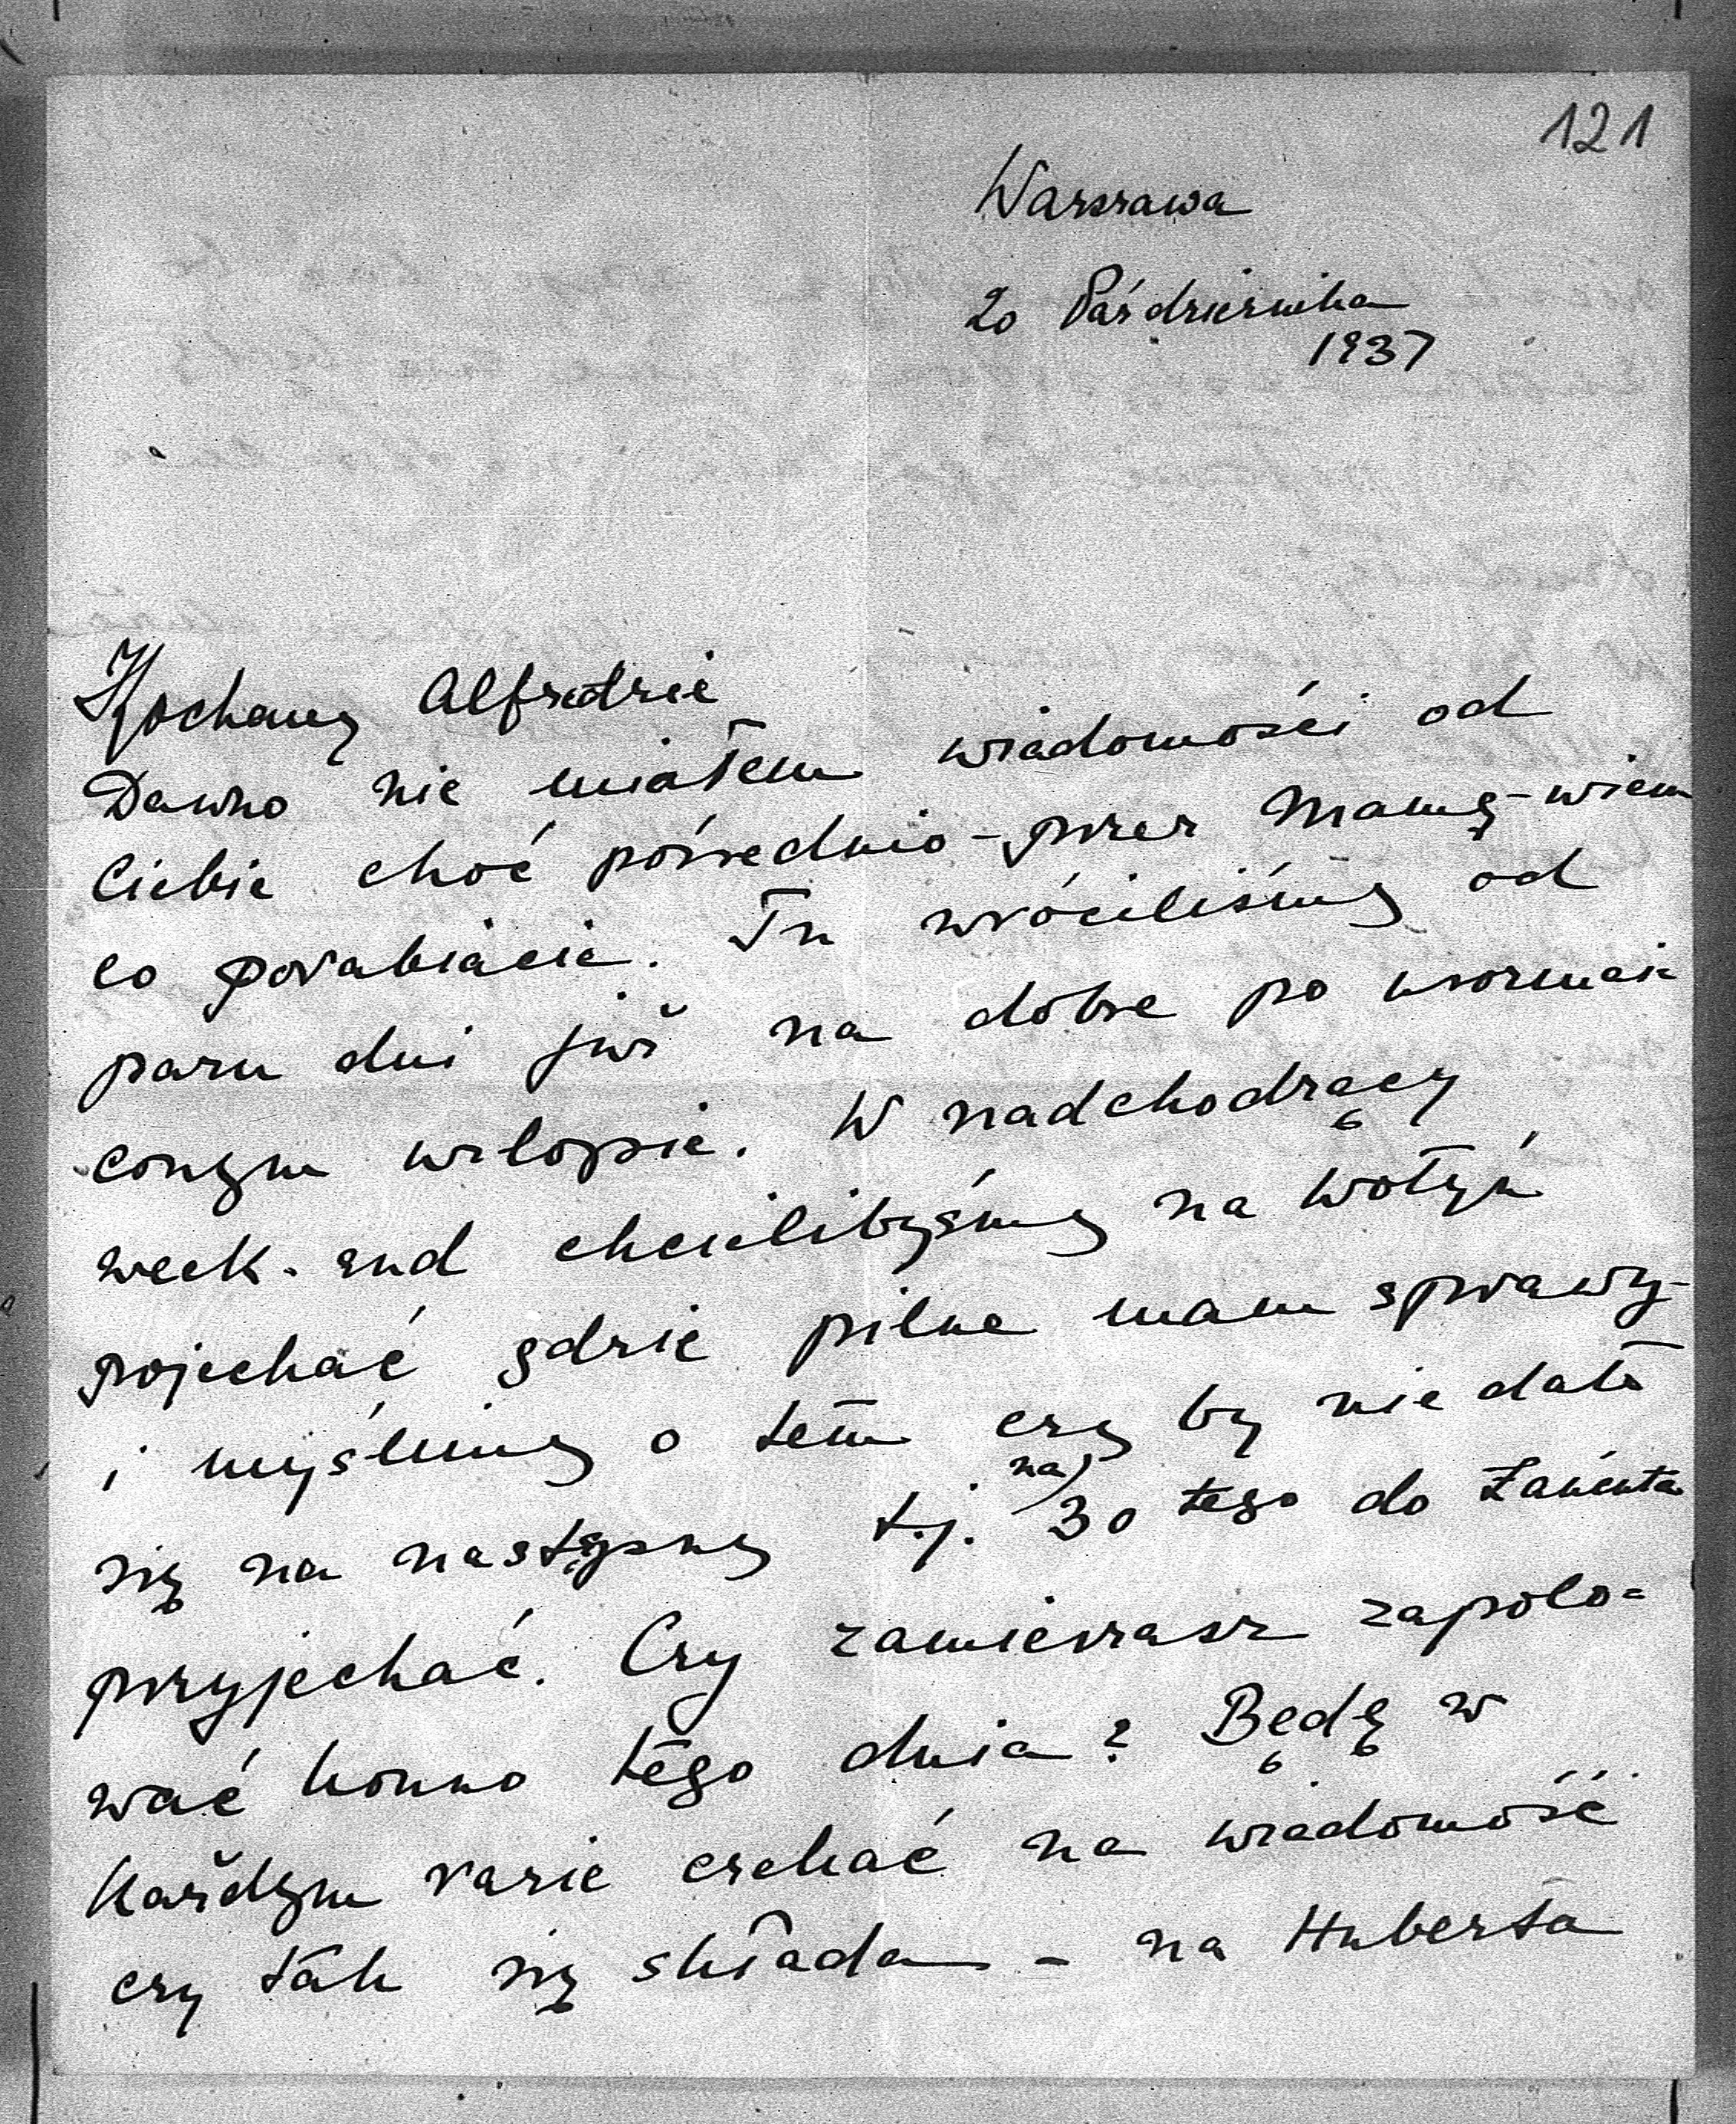 121
Warszawa
20 Października
1937
Kochany Alfredzie
Dawno nie miałem wiadomości od
Ciebie choć pośrednio - przez Mamę - wiem
co porabiacie. Tu wróciliśmy od
paru dni już na dobre po urozmai
conym urlopie. W nadchodzący
week-end chcielibyśmy na Wołyń
pojechać gdzie pilne mam sprawy -
i myślimy o tem czy by nie dało
się na następny t.j. na 30 tego do Łańcuta
przyjechać. Czy zamierzasz zapolo=
wać konno tego dnia? Będę w
każdym razie czekać na wiadomość
czy tak się składa - na Huberta